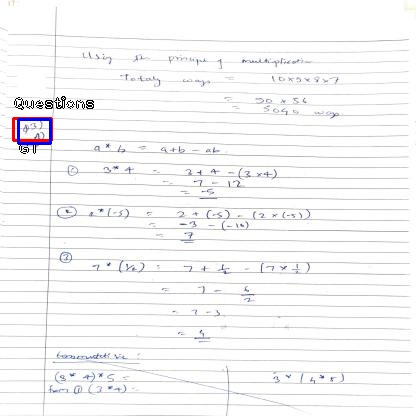 Using the principle of multiplication
Total ways = 10×9×8×7
= 90 × 56
= 5040 ways
Questions
A)
GT
a * b = a+b - ab
① 3 * 4 = 3 + 4 - (3 × 4)
= 7 - 12
= -5
② 2 * (-5) = 2 + (-5) - (2 × (-5))
= -3 - (-10)
= 7
③ 7 * (1/2) = 7 + 1/2 - (7 × 1/2)
= 7 - 6/2
= 7 - 3
= 4
Commutative :
(3 * 4) * 5 = 3 * (4 * 5)
from ① (3 * 4) =